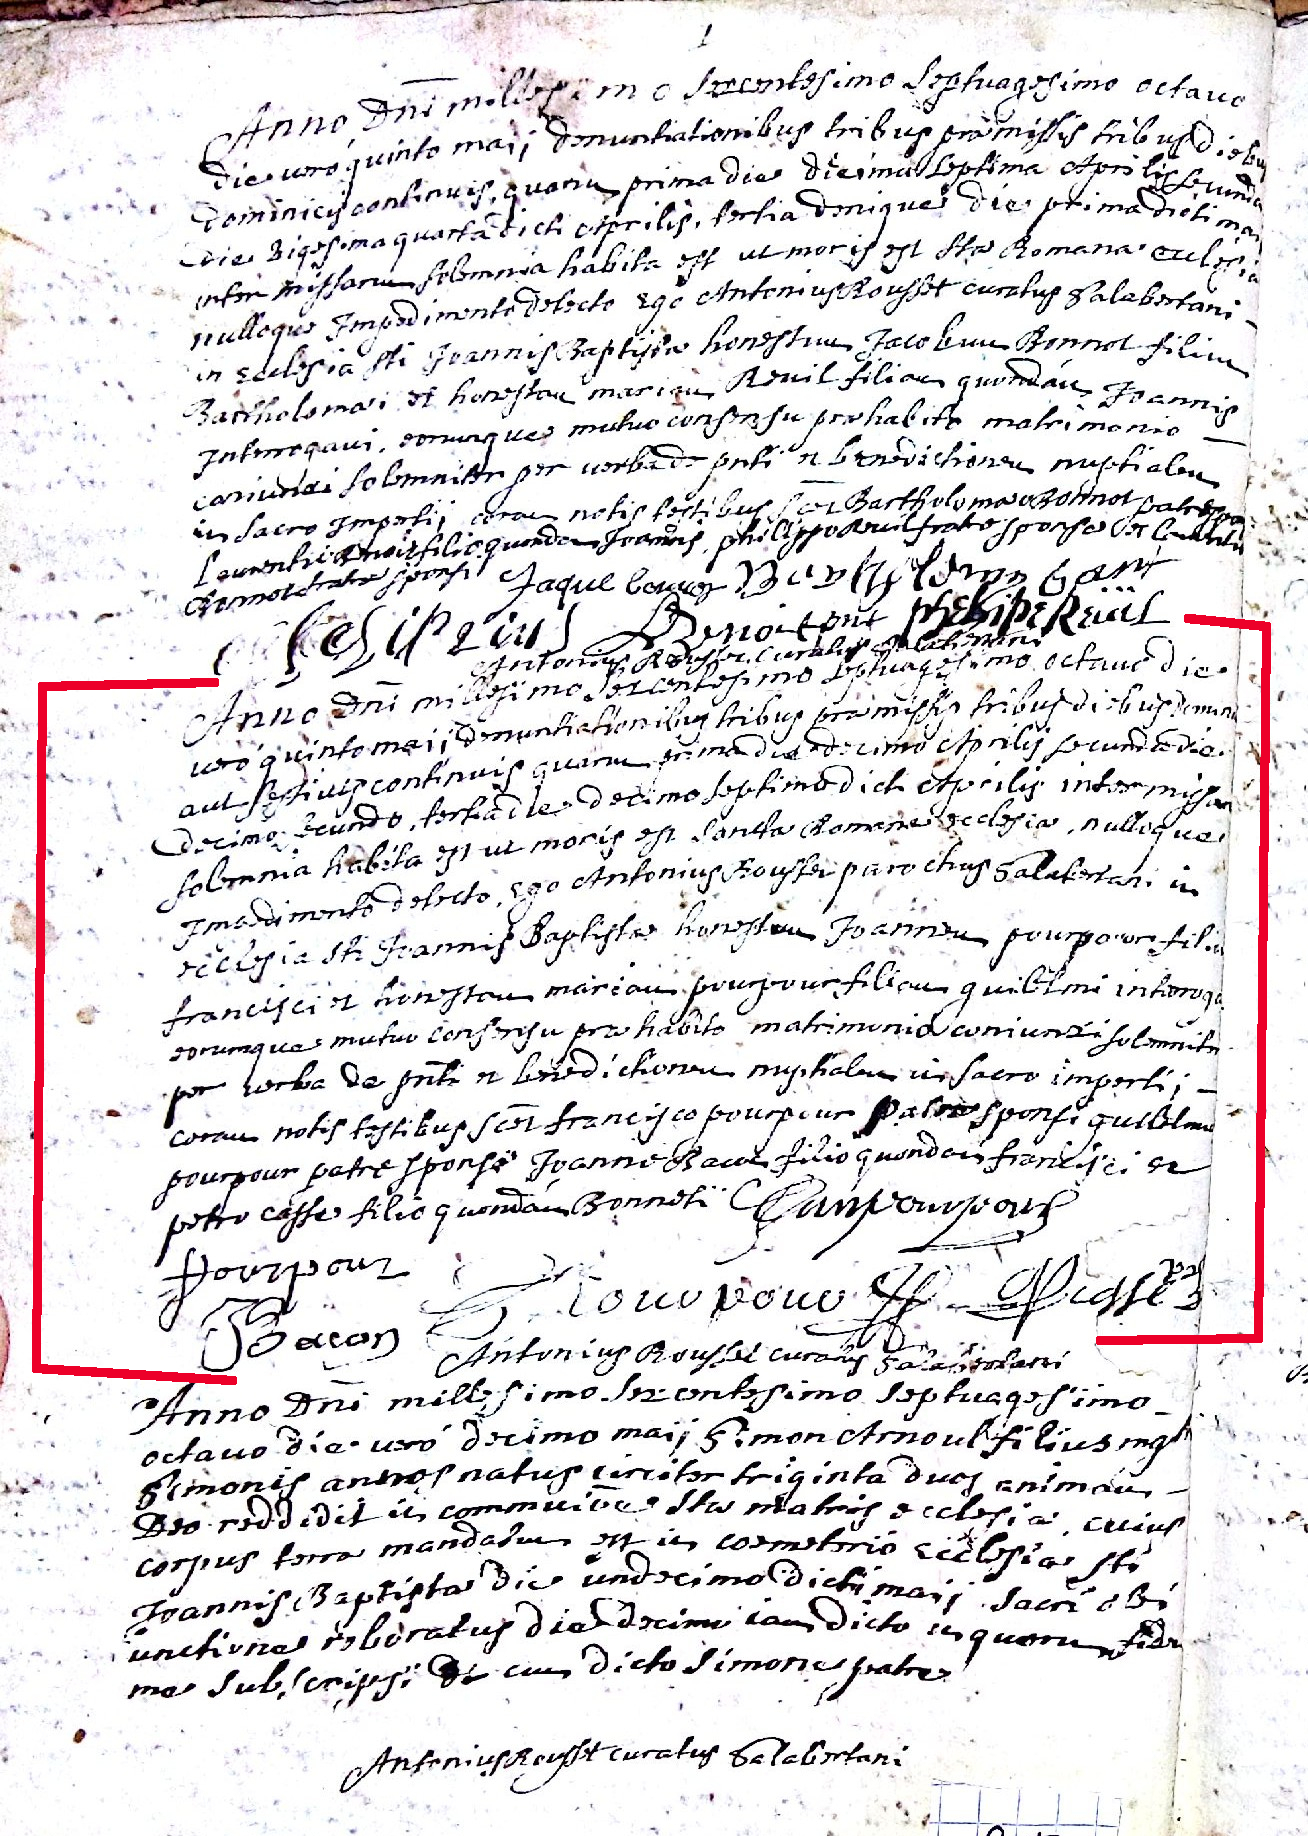 1
Anno Dni millesimo sexcentesimo septuagesimo octavo
die vero quinto maij denuntiationibus tribus præmissis tribus diebus
dominicis continuis, quaru prima die decima septima Aprilis secunda
die vigesima quarta dicti Aprilis, tertia denique die prima dicti maij
inter missaru solemnia habita est ut moris est stæ Romanæ ecclesiæ
nulloque Impedimento detecto Ego Antonius Rousset curatus Salabertani
in ecclesia sti Joannis Baptistæ honestum Jacobum Bonnot filiu
Bartholomæi et honestam mariam Revil filiam quondam Joannis
Interrogavi, eorumque mutuo consensu præhabito matrimonio
coniunxi solemniter per verba de pnti et benedictionem nuptialem
in sacro Impertij coram notis testibus scet Bartholomæo Bonnot patre
Laurentii filio quondam Joannis, philippo Revil fratre sponsæ et
Bonnot fratre sponsi Jaque bonnot
phelipe Revil
Antonius Rousset curatus Salabertani
Anno Dni millesimo sexcentesimo septuagesimo octavo die
vero quinto maij denuntiationibus tribus præmissis tribus diebus
aut festivis continuis quaru prima die decimo Aprilis secunda die
decimo secundo, tertia die decimo septimo dicti Aprilis inter missaru
solemnia habita est ut moris est sanctæ Romanæ ecclesiæ, nulloque
Impedimento detecto, Ego Antonius Rousset parochus Salabertani in
ecclesia sti Joannis Baptistæ honestum Joannem pourpour filiu
francisci et honestam mariam pourpour filiam guilelmi interroga
eorumque mutuo consensu præhabito matrimonio coniunxi solemniter
per verba de pnti et benedictionem nuptialem in sacro impertij
coram notis testibus scet francisco pourpour Patre sponsi guilelmo
pourpour patre sponsæ Joanne Bacon filio quondam francisci et
petro casse filio quondam Bonneti
Pourpour
Bacon
Antonius Rousset curatus Salabertani
Anno Dni millesimo sexcentesimo septuagesimo
octavo die vero decimo maij Simon Arnoul filius mgri
Simonis annos natus circiter triginta duos animam
Deo reddidit in communione stæ matris ecclesiæ, cuius
corpus terræ mandatum est in coemeterio ecclesiæ sti
Joannis Baptistæ die undecimo dicti maij sacri olei
unctione roboratus die decimo iam dicto in quorum fidem
me subscripsi cum dicto Simone patre
Antonius Rousset curatus Salabertani